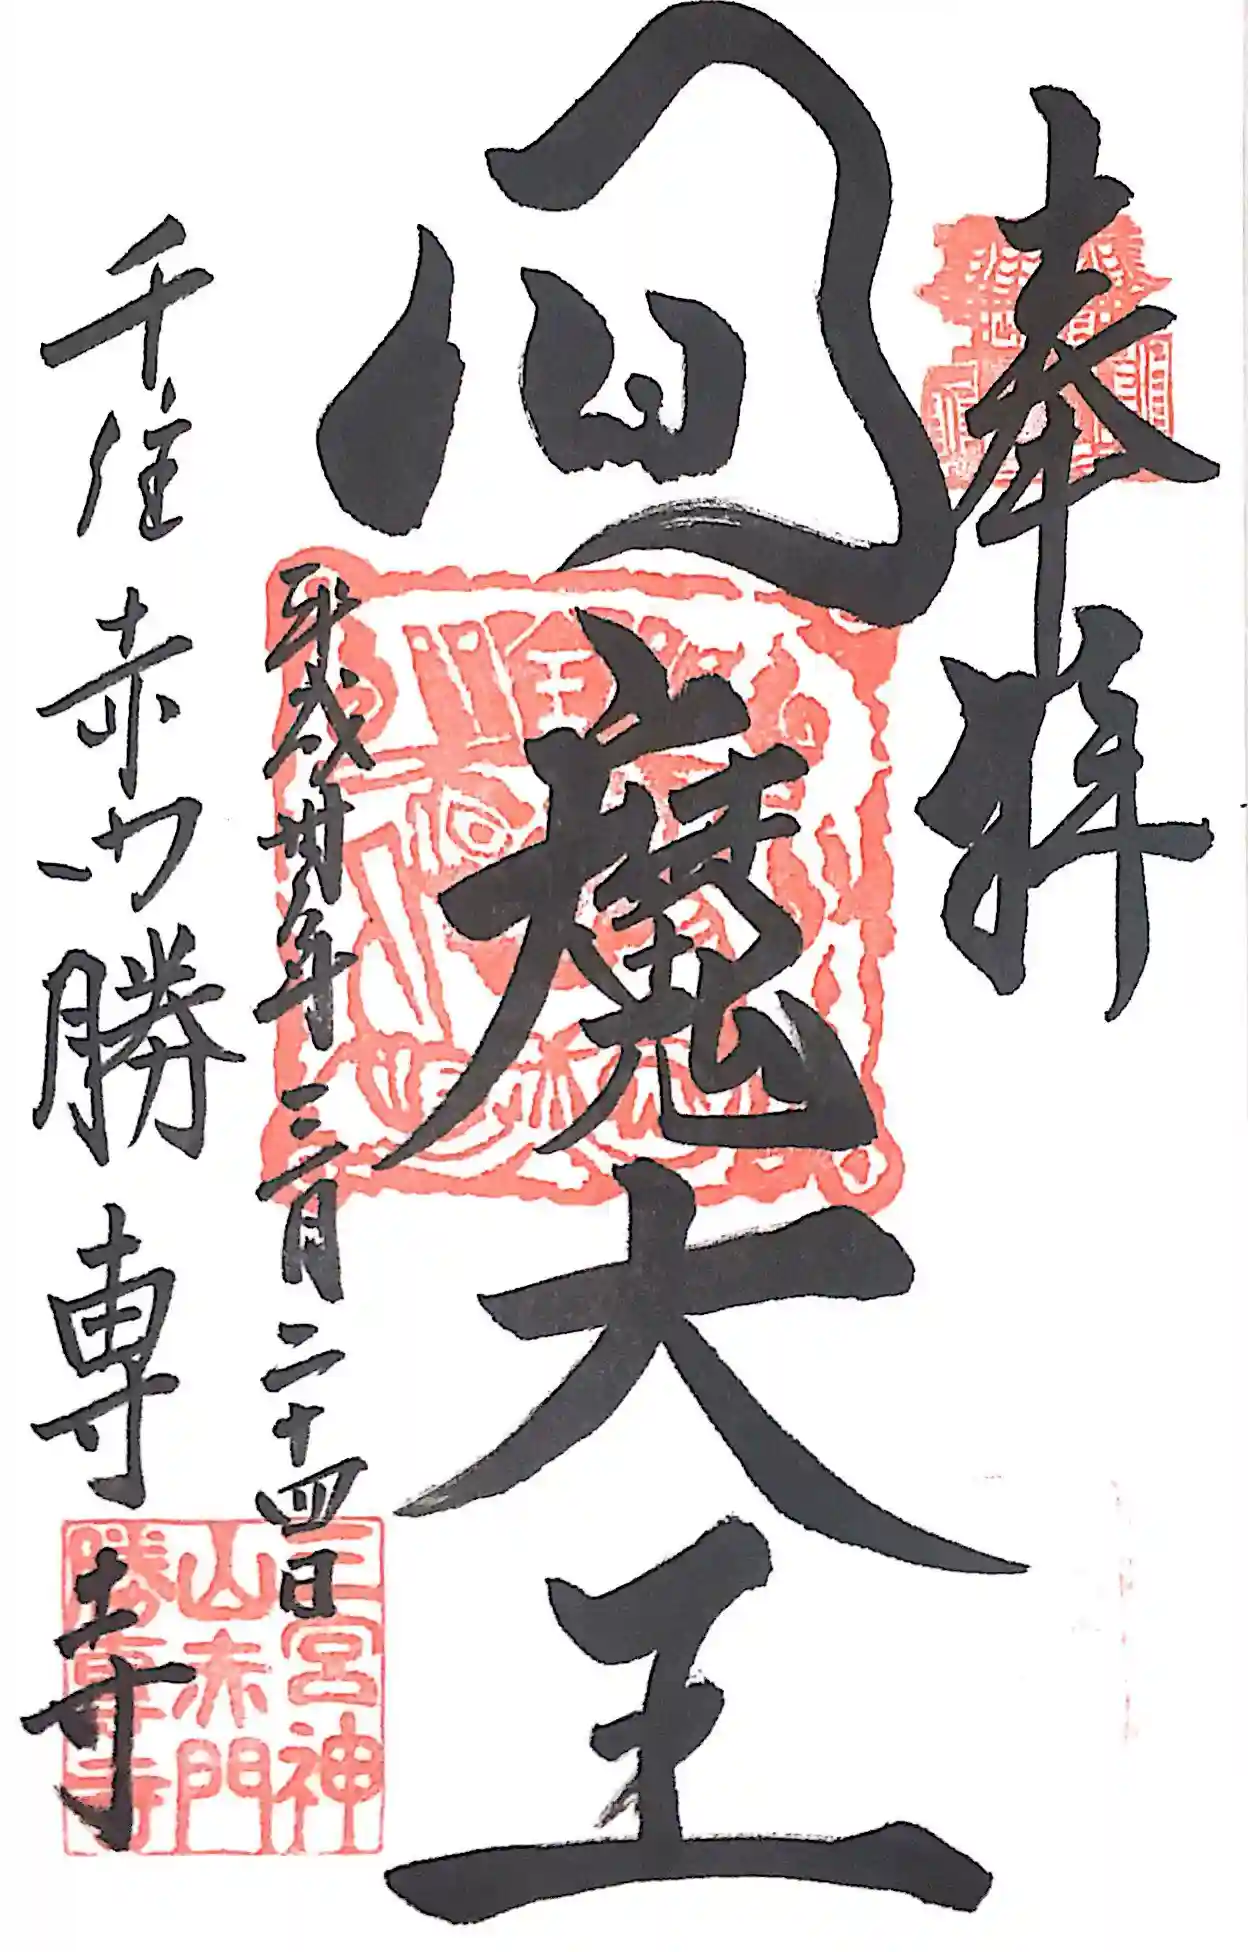 奉拝
閻魔大王
王
平成卅年三月二十四日
千住赤門勝専寺
三宮神
山赤門
勝専寺